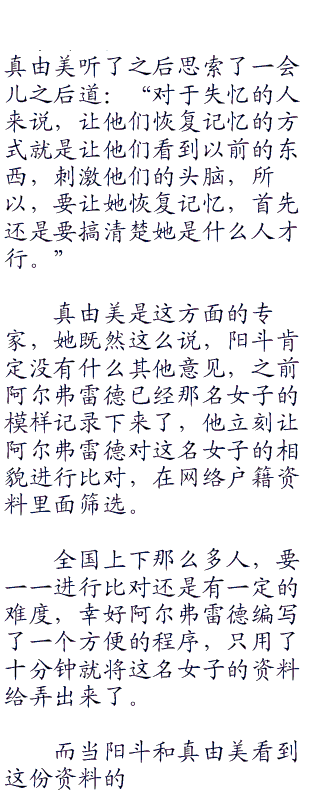 真由美听了之后思索了一会
儿之后道：“对于失忆的人
来说，让他们恢复记忆的方
式就是让他们看到以前的东
西，刺激他们的头脑，所
以，要让她恢复记忆，首先
还是要搞清楚她是什么人才
行。”
真由美是这方面的专
家，她既然这么说，阳斗肯
定没有什么其他意见，之前
阿尔弗雷德已经那名女子的
模样记录下来了，他立刻让
阿尔弗雷德对这名女子的相
貌进行比对，在网络户籍资
料里面筛选。
全国上下那么多人，要
一一进行比对还是有一定的
难度，幸好阿尔弗雷德编写
了一个方便的程序，只用了
十分钟就将这名女子的资料
给弄出来了。
而当阳斗和真由美看到
这份资料的